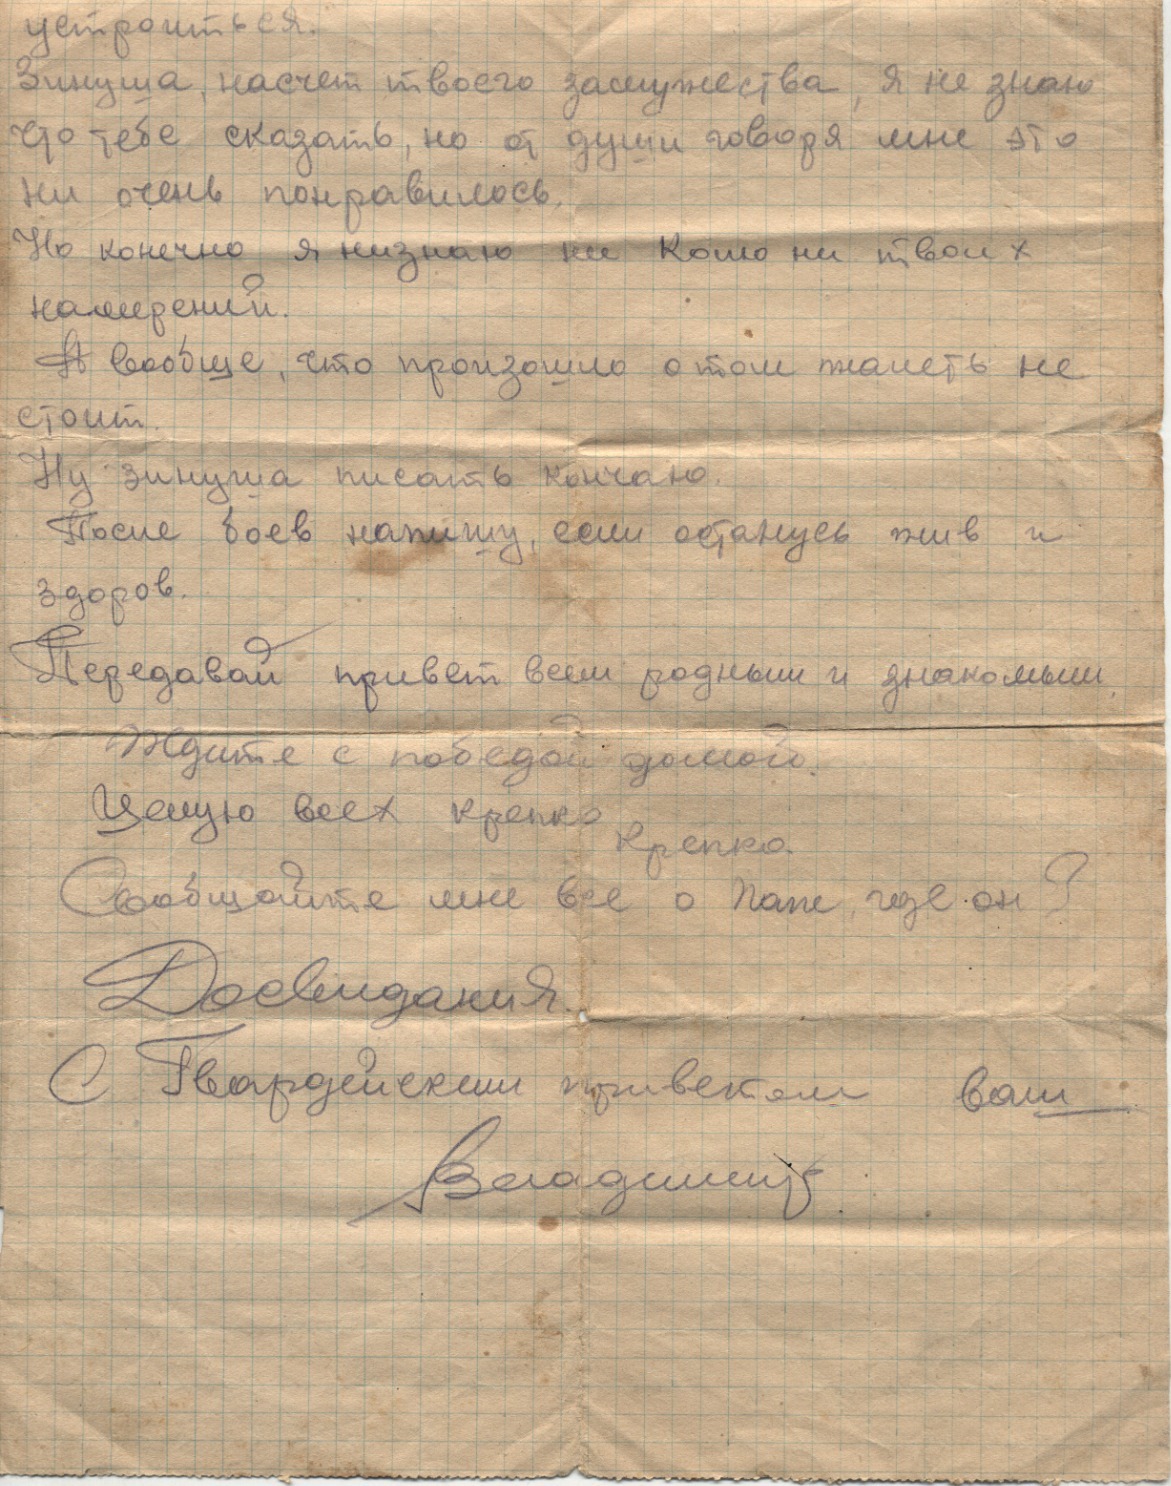 устроиться.
Зинуша, насчет твоего замужества, я не знаю
что тебе сказать, но от души говоря мне это
ни очень понравилось.
Но конечно я низнаю ни Колю ни твоих
намерений.
А вообще, что произошло о том жалеть не
стоит.
Ну зинуша писать кончаю.
После боев напишу, если останусь жив и
здоров.
Передавай привет всем родным и знакомым.
Ждите с победой домой.
Целую всех крепко
крепко.
Сообщайте мне все о папе, где он?
Досвидания.
С Гвардейским приветом ваш
Владимир.